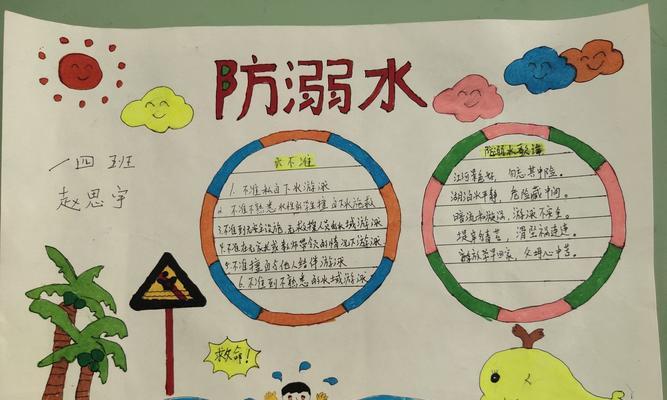 防溺水
一四班
赵思宇
六不准
1.不准私自下水游泳
2.不准不熟悉水性的学生擅自下水施救
3.不准到无安全设施、无救援人员的水域游泳
4.不准在无家长或教师带领的情况下游泳
5.不准擅自与他人结伴游泳
6.不准到不熟悉的水域游泳
防溺水
江河景色好，勿忘其中险。
湖泊水平静，危险藏中间。
暗流和漩涡，游泳不安全。
堤岸
父母心中苦。
救命！